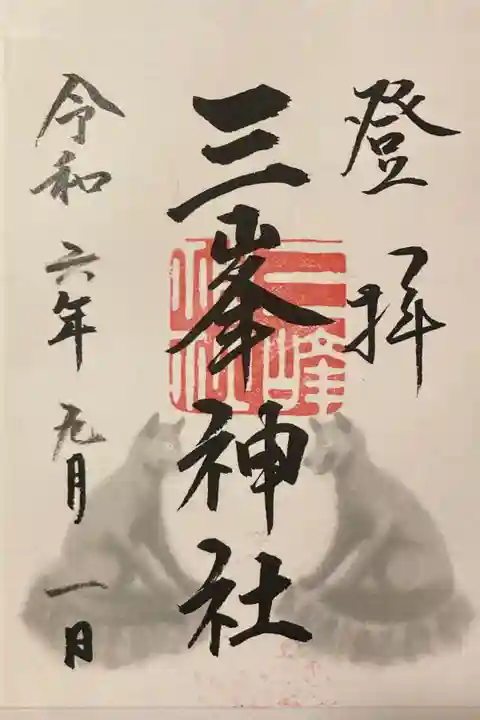 登拝
三峯神社
令和六年九月一日